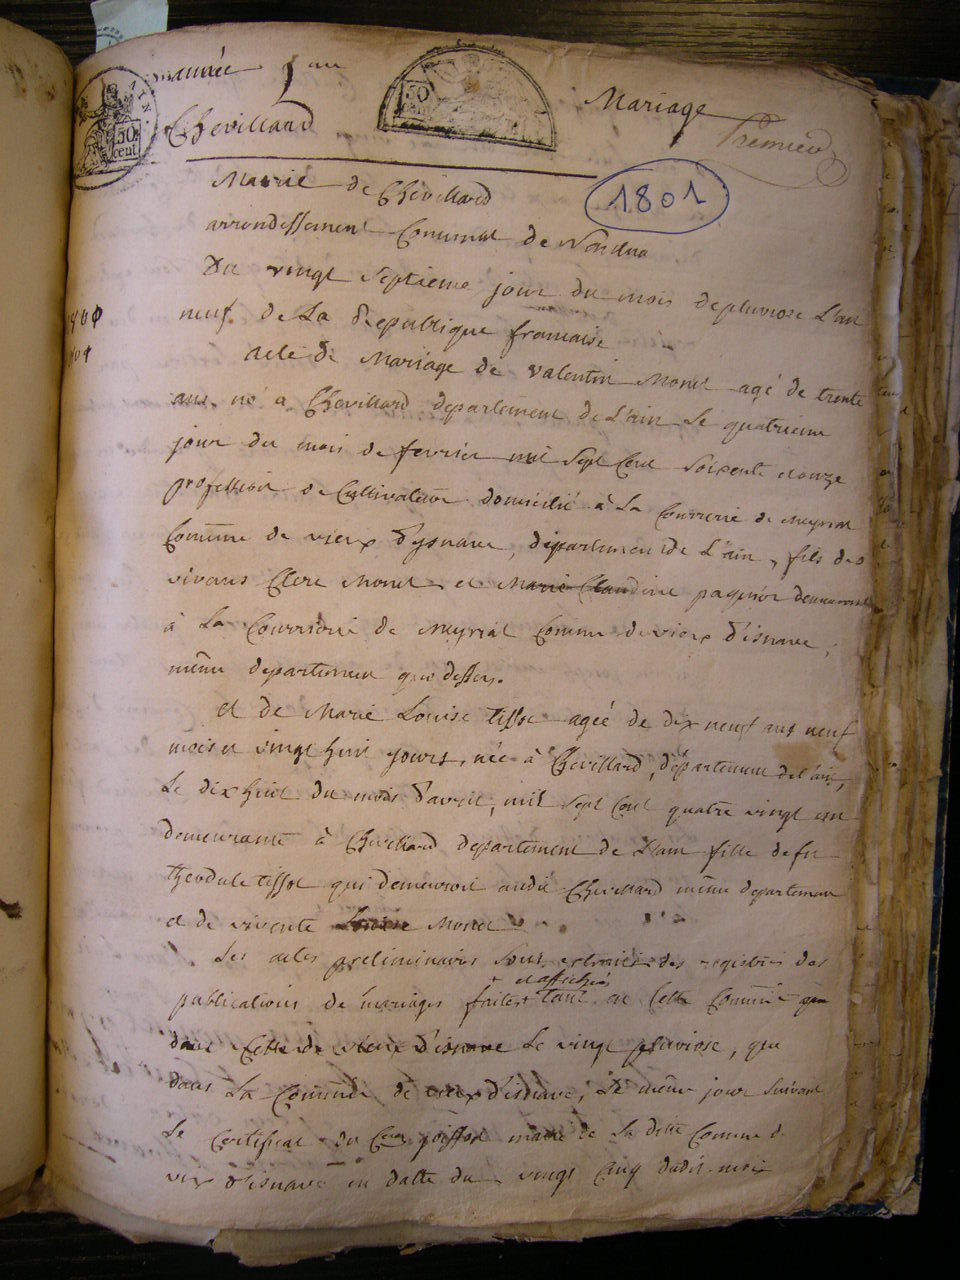 année
Chevillard
50
cent
AIN.
50
Mariage
Premier
1801
Mairie de Chevillard
arrondissement Communal de Nantua
Du vingt septieme jour du mois de pluviose L'an
neuf de La Republique francaise
acte de Mariage de Valentin Monet agé de trente
ans né a Chevillard departement de L'ain Le quatrieme
jour du mois de fevrier mil Sept Cent Soixente et onze
profession de Cultivateur domicilié à La Courrerie de Meyriat
Commune de vieux d'ysnave, département de L'ain, fils des
vivans Clere Monet et Marie Claudine demeurant
à La Courrerie de Meyriat Commune de vieux d'isnave,
même departement que dessus.
et de Marie Louise tissot agée de dix neuf ans neuf
mois et vingt huit jours, née à Chevillard, département de l'ain,
Le dix huit du mois d'avril, mil Sept Cent quatre vingt un
demeurante à Chevillard departement de L'ain fille de fu
theodule tissot qui demeuroit audit Chevillard même departement
et de vivente Monet
Les actes preliminaires Sont extraits des registres des
et affichés
publications de mariages faites tant en Cette Commune que
dans Celle de vieux d'isnave Le vingt pluviose, que
dans La Commune de vieux d'isnave, Le même jour Suivant
Le Certificat du maire de La dite Commune d
vieux d'isnave en datte du vingt Cinq dudit mois